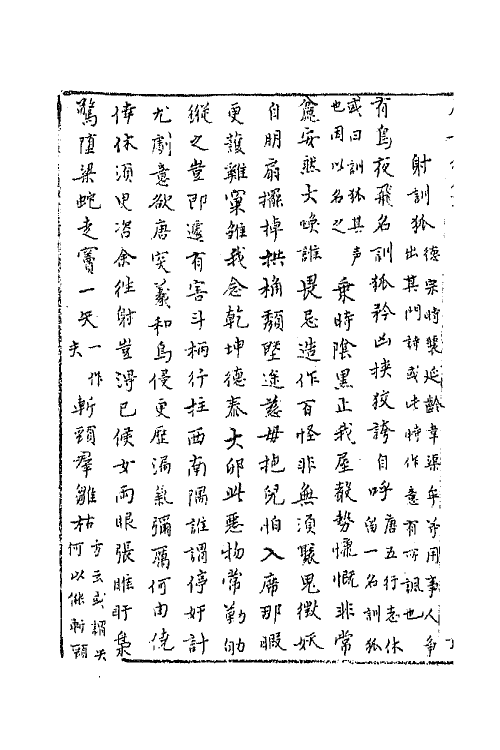 射訓狐德宗時裴延齡韋渠牟等用事人爭
出其門詩或此時作意有所諷也
有鳥夜飛名訓狐矜凶挾狡誇自呼唐五行志休
留一名訓狐
或曰訓狐其声
也因以名之
乘時陰黑止我屋聲勢慷慨非常
麄安然大喚誰畏忌造作百怪非無須聚鬼徵妖
自朋扇擺掉栱桷頹墍塗慈母抱兒怕入席那暇
更護雞窠雛我念乾坤德泰大卵此惡物常勤劬
縱之豈即遽有害斗柄行拄西南隅誰謂停奸計
尤劇意欲唐突羲和烏侵更歷漏氣彌厲何由僥
倖休須臾咨余往射豈得已候女兩眼張睢盱梟
驚墮梁蛇走竇一矢一作
夫
斬頸羣雛枯方云或謂矢
何以能斬頸